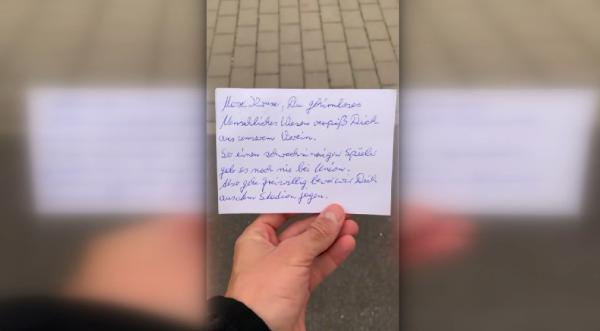 Max Kruse, Du gehirnloses
Menschliches Wesen verpiß Dich
aus unserem Verein.
So einen schwachsinnigen Spieler
gab es noch nie bei Union.
Also geh freiwillig bevor wir Dich
aus dem Stadion jagen.